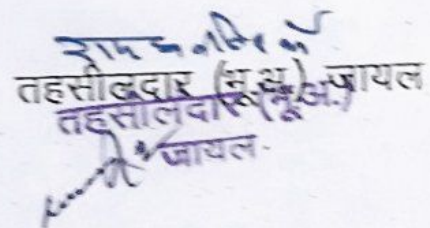 तहसीलदार (भू.अ.) जायल
तहसीलदार (भू.अ.)
जायल